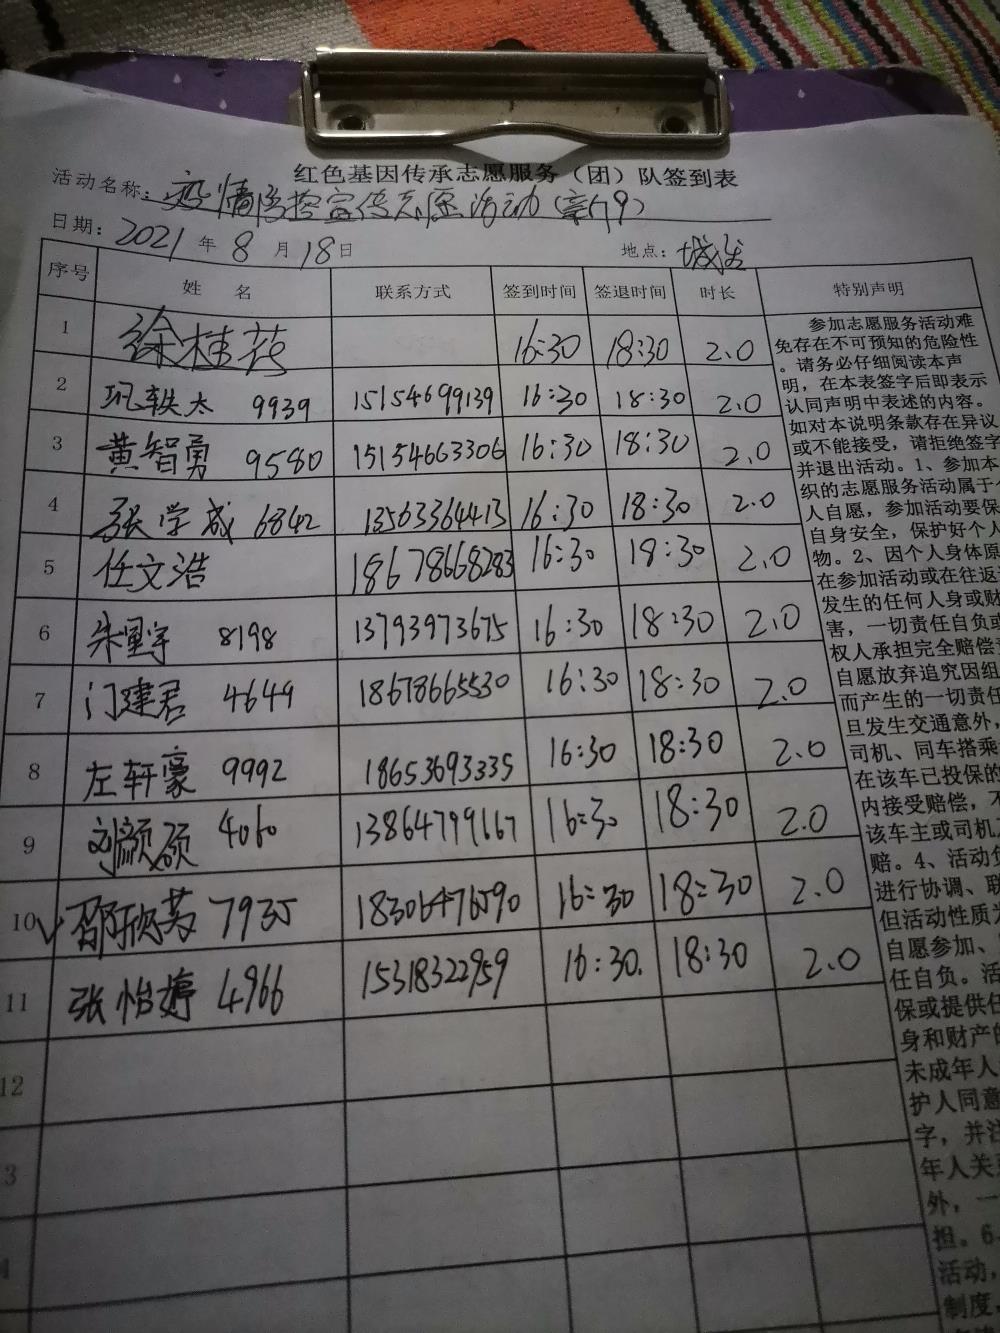 红色基因传承志愿服务（团）队签到表
活动名称：疫情防控宣传志愿活动
日期：2021年8月18日 地点：
序号 姓名 联系方式 签到时间 签退时间 时长 特别声明
1 徐桂花 16:30 18:30 2.0
2 巩轶太 9939 15154699139 16:30 18:30 2.0
3 黄智勇 9580 15154663306 16:30 18:30 2.0
4 张学成 6842 13563364413 16:30 18:30 2.0
5 任文浩 18678668283 16:30 18:30 2.0
6 8198 13793973675 16:30 18:30 2.0
7 门建君 4649 18678665530 16:30 18:30 2.0
8 左轩豪 9992 18653693335 16:30 18:30 2.0
9 刘颜硕 4060 13864799667 16:30 18:30 2.0
10 邵欣芮 7935 18306476590 16:30 18:30 2.0
11 张怡婷 4966 15318322959 16:30. 18:30 2.0
12
3
参加志愿服务活动难
免存在不可预知的危险性
。请务必仔细阅读本声
明，在本表签字后即表示
认同声明中表述的内容。
如对本说明条款存在异议
或不能接受，请拒绝签字
并退出活动。1、参加本
织的志愿服务活动属于个
人自愿，参加活动要保
自身安全，保护好个人
物。2、因个人身体原
在参加活动或在往返
发生的任何人身或财
害，一切责任自负或
权人承担完全赔偿
自愿放弃追究因组
而产生的一切责任
旦发生交通意外，
司机、同车搭乘
在该车已投保的
内接受赔偿，不
该车主或司机
赔。4、活动负
进行协调、联
但活动性质为
自愿参加、
任自负。活
保或提供任
身和财产的
未成年人
护人同意
字，并注
年人关
外，一
担。6
活动，
制度，